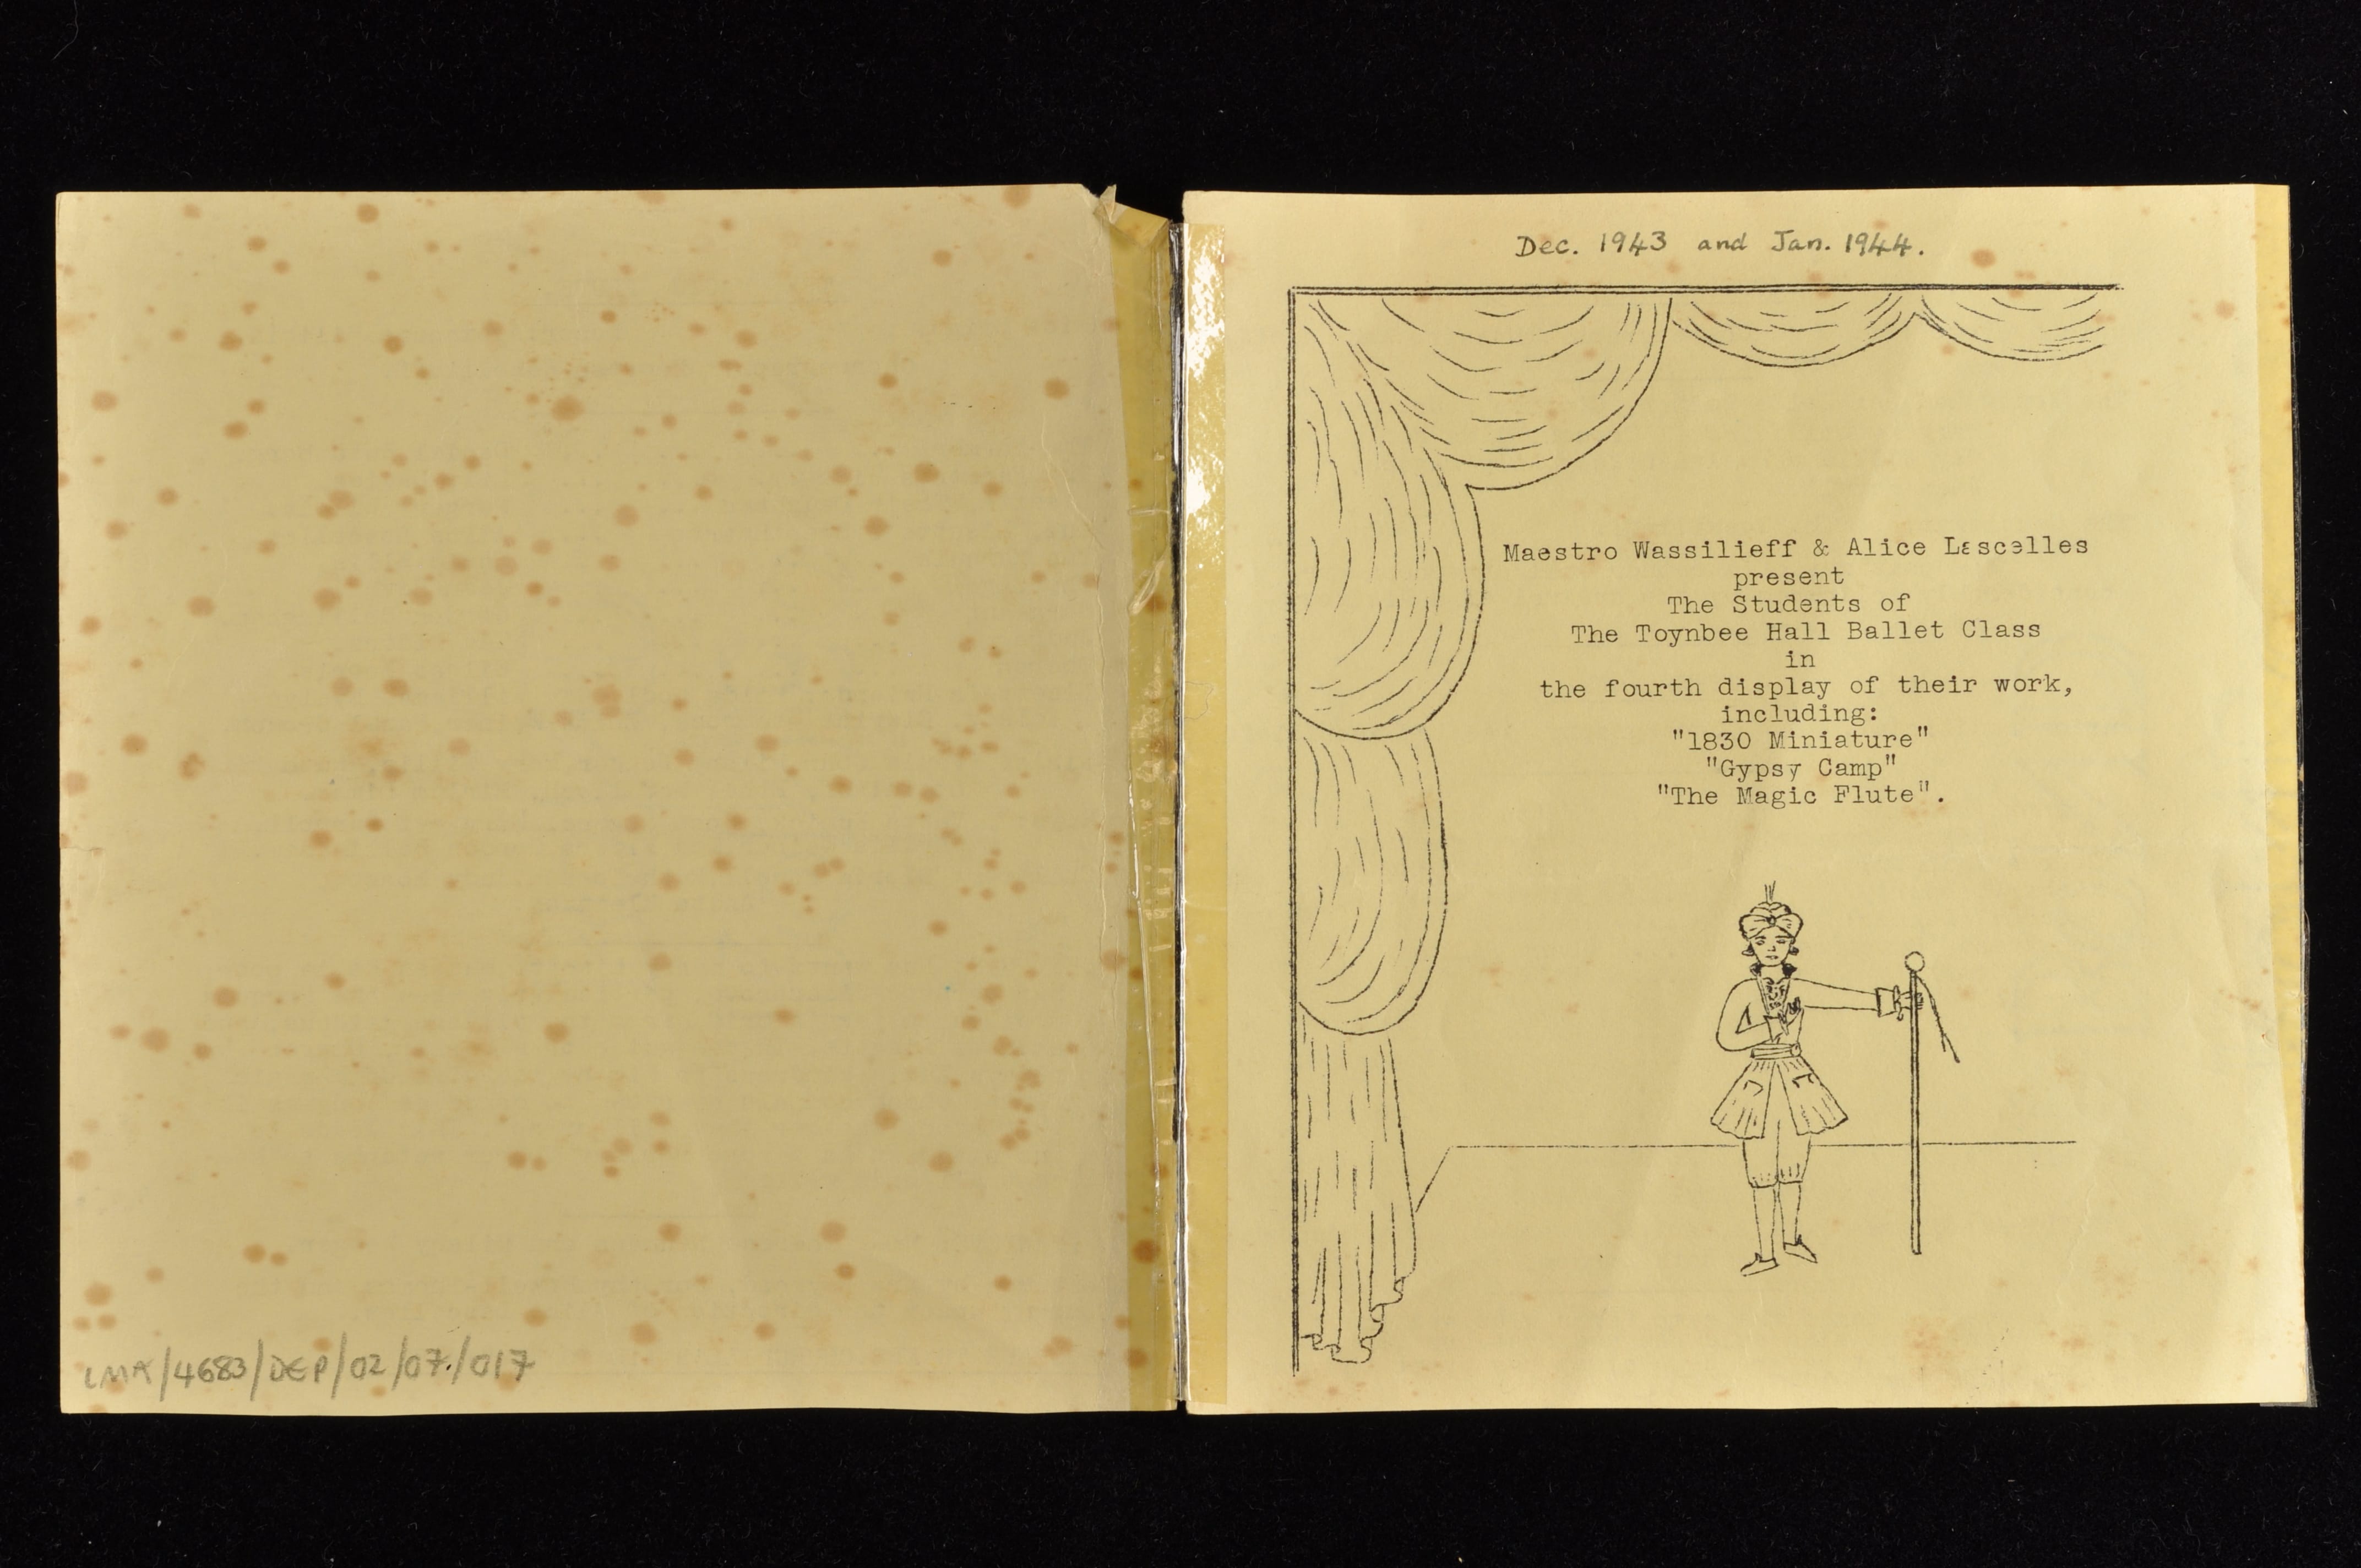 LMA/4683/DEP/02/07/017
Dec. 1943 and Jan. 1944.
Maestro Wassilieff & Alice Lascelles
present
The Students of
The Toynbee Hall Ballet Class
in
the fourth display of their work,
including:
"1830 Miniature"
"Gypsy Camp"
"The Magic Flute".